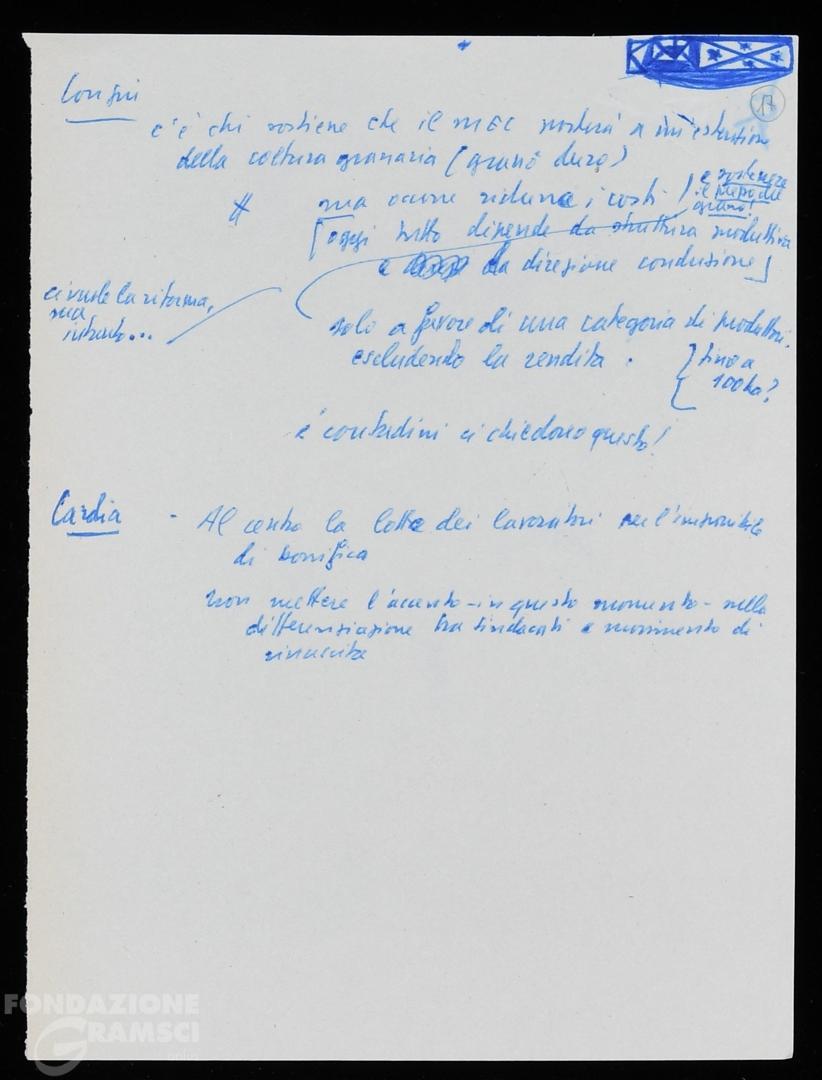 17
Congiu
c'è chi sostiene che il MEC porterà a un'estensione
della coltura granaria (grano duro)
# ma occorre ridurre i costi / e sostenere
il prezzo del
grano!
[oggi tutto dipende da struttura produttiva
e da direzione conduzione]
ci vuole la riforma,
ma
intanto...
solo a favore di una categoria di produttori,
escludendo la rendita. } fino a
{ 100 ha?
i contadini ci chiedono questo!
Cardia - Al centro la lotta dei lavoratori per l'imponibile
di bonifica
non mettere l'accento - in questo momento - sulla
differenziazione tra sindacati e movimento di
rinascita
FONDAZIONE
GRAMSCI